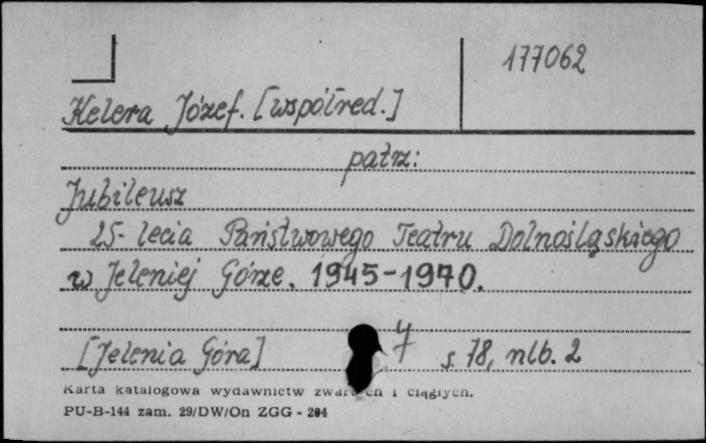 177062
Kelera Józef. [współred.]
patrz:
Jubileusz
25-lecia Państwowego Teatru Dolnośląskiego
w Jeleniej Górze. 1945-1970.
[Jelenia Góra] 4 s. 78, nlb. 2
Karta katalogowa wydawnictw i ciągłych.
PU-B-144 zam. 29/DW/On ZGG - 204